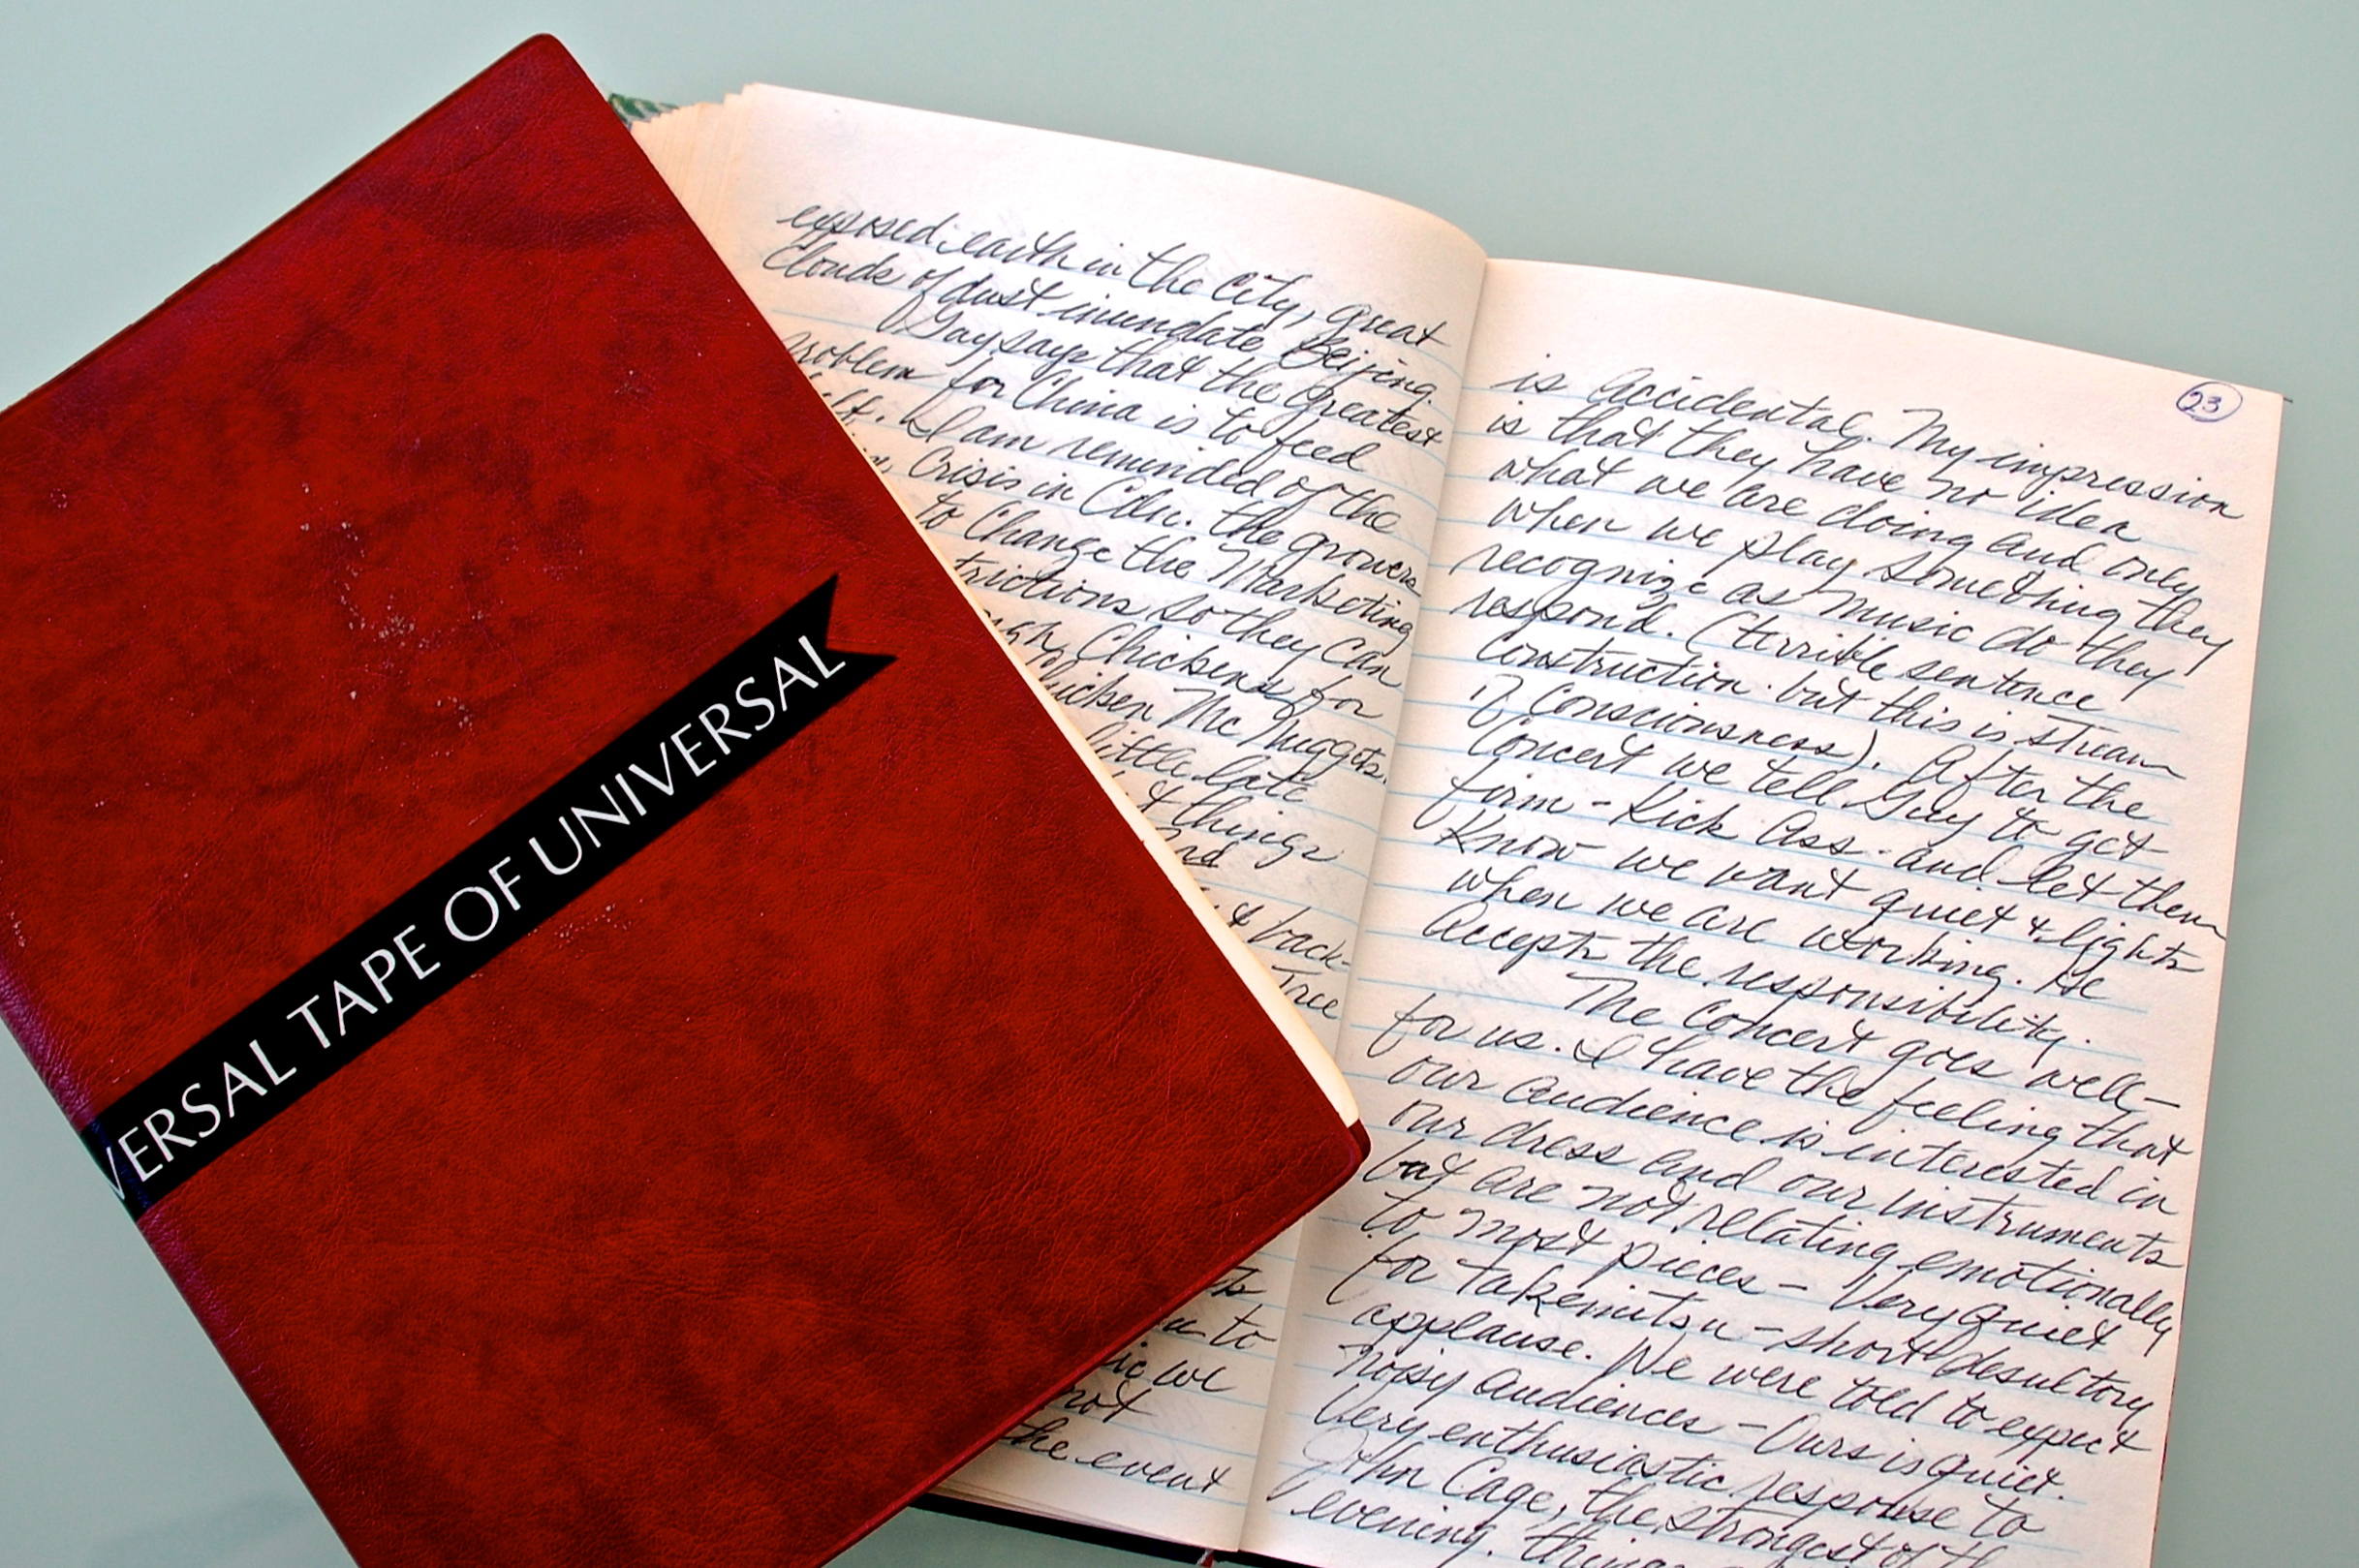 VERSAL TAPE OF UNIVERSAL
exposed earth in the City, great
Clouds of dust inundate Beijing.
Guy says that the greatest
problem for China is to feed
I am reminded of the
Crisis in Cdn. the growers
to Change the Marketing
trictions so they can
Chickens for
Chicken Mc Nuggets.
little late
t things
t back-
Tree
to
ic we
not
the event
23
is accidental. My impression
is that they have no idea
what we are doing and only
when we play something they
recognize as music do they
respond. (terrible sentence
Construction. but this is stream
of Consciousness). After the
Concert we tell Guy to get
firm - Kick Ass - and let them
Know we want quiet & lights
when we are working. He
Accepts the responsibility.
The Concert goes well -
for us. I have the feeling that
our audience is interested in
our dress and our instruments
but are not relating emotionally
to most pieces - Very quiet
for Takemitsu - short desultory
applause. We were told to expect
noisy audiences - Ours is quiet.
Very enthusiastic response to
John Cage, the strongest of th
evening.